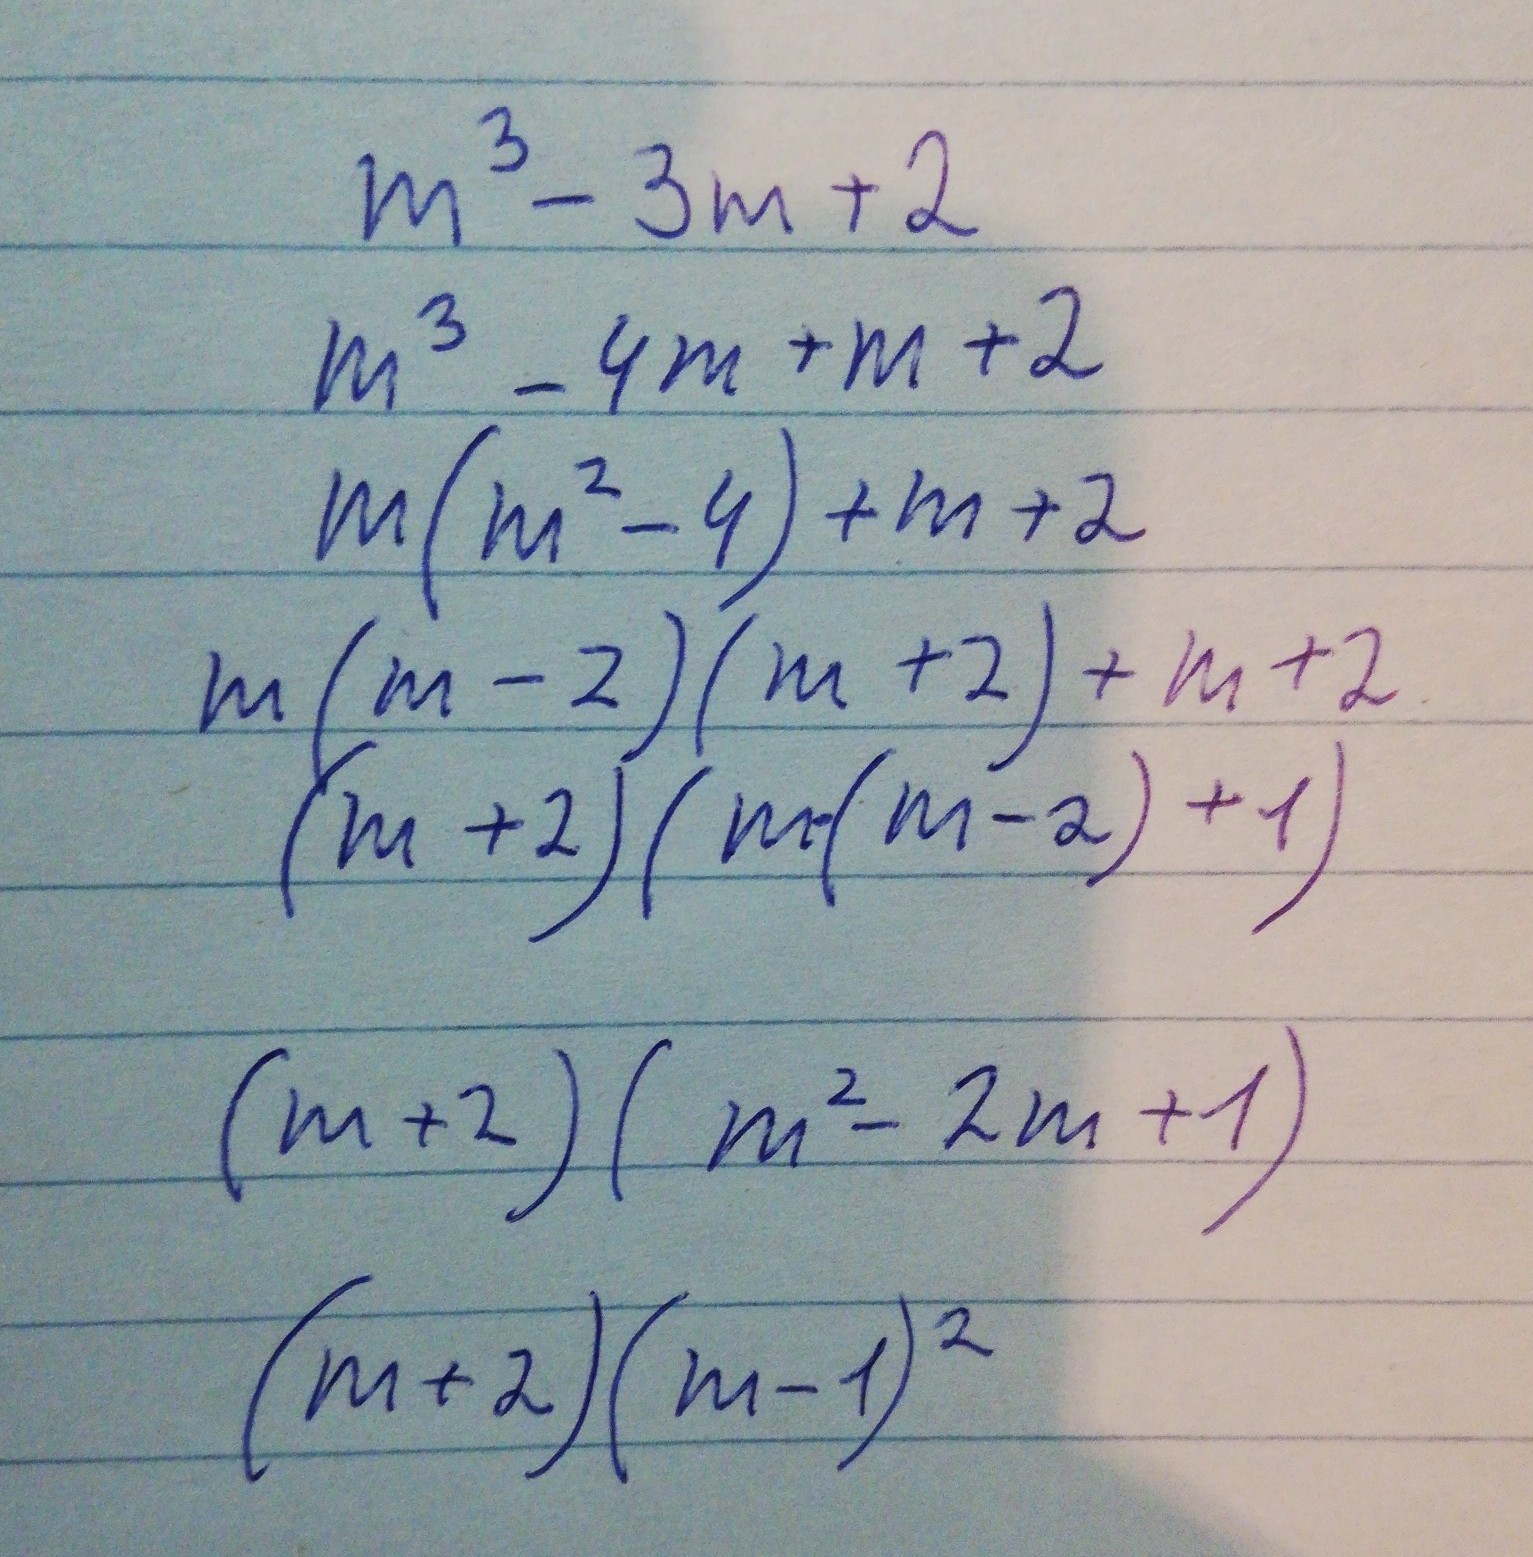 m³ - 3m + 2
m³ - 4m + m + 2
m(m² - 4) + m + 2
m(m - 2)(m + 2) + m + 2
(m + 2)(m(m - 2) + 1)
(m + 2)(m² - 2m + 1)
(m + 2)(m - 1)²